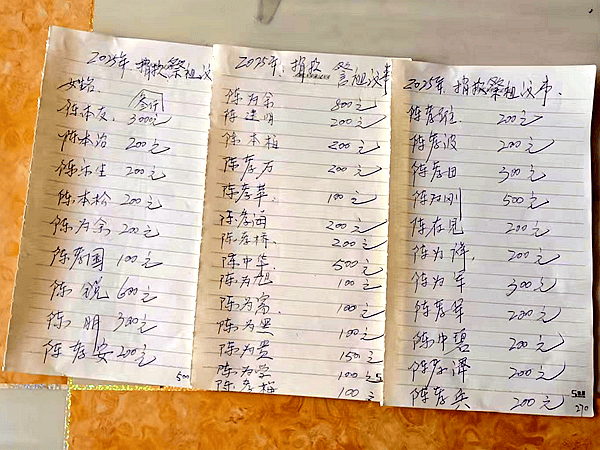 2025年捐款祭祖议事
姓名
叁仟
陈本友 3000元
陈本治 200元
陈示生 200元
陈本松 200元
陈为余 200元
陈孝国 100元
陈锐 600元
陈明 300元
陈孝安 200元
500
2025年捐款祭祖议事
陈为余 800元
陈建明 200元
陈本植 200元
陈孝万 200元
陈孝苹 100元
陈孝海 200元
陈孝桥 200元
陈中华 500元
陈为旭 100元
陈为富 100元
陈为贵 100元
陈为贵 150元
陈为学 100元
陈孝梅 100元
2025年捐款祭祖议事
陈孝胜 200元
陈孝波 200元
陈孝田 300元
陈为刚 500元
陈在见 200元
陈为祥 200元
陈为军 300元
陈孝军 200元
陈中碧 200元
陈孝泽 200元
陈孝兵 200元
500
270